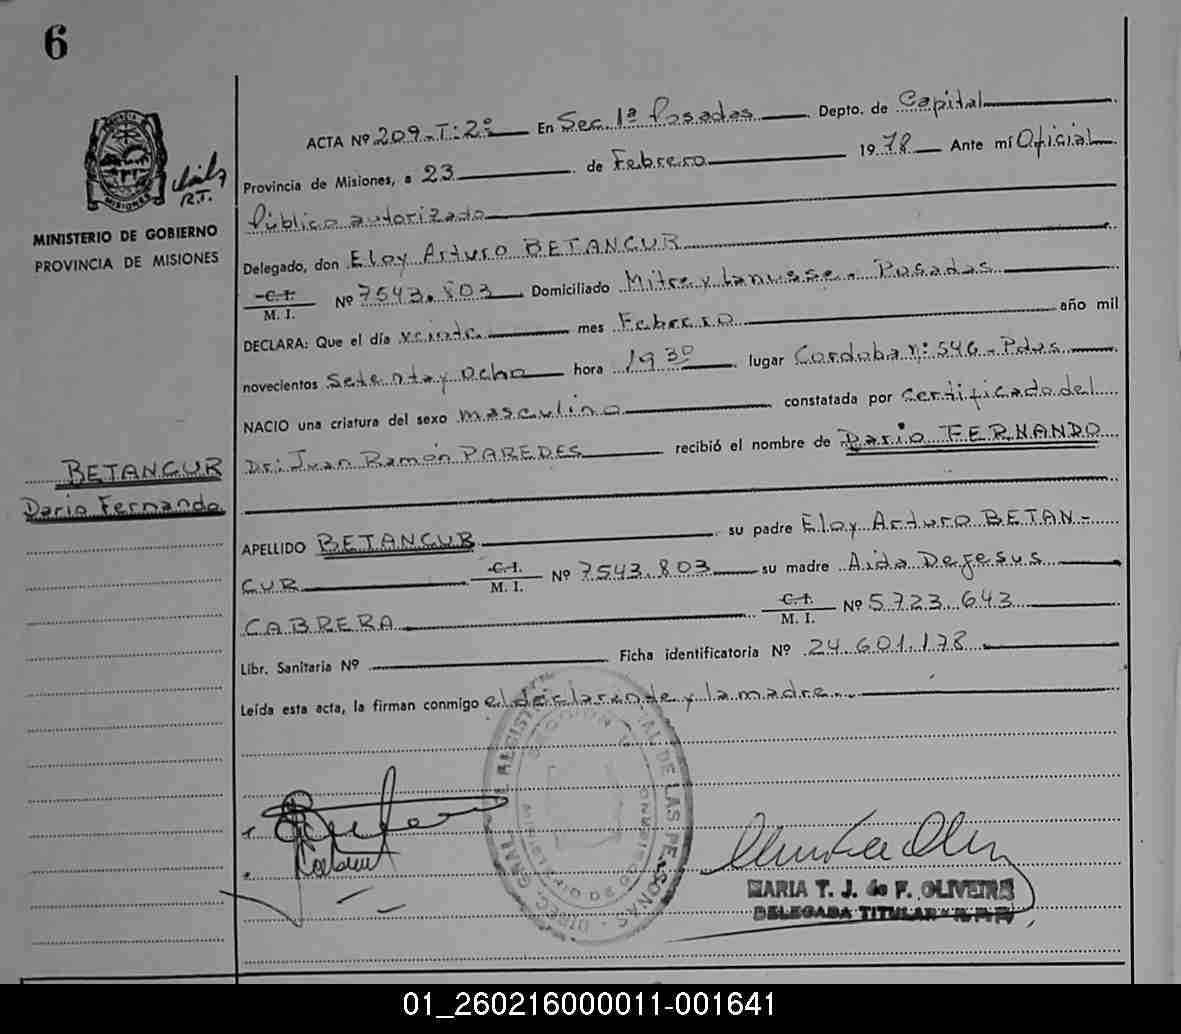 6
ACTA Nº 209-T:2º En Sec 1ª Posadas Depto. de Capital
Provincia de Misiones, a 23 de Febrero 1978 Ante mí Oficial
Público autorizado
MISIONES
R.T.
MINISTERIO DE GOBIERNO
PROVINCIA DE MISIONES
Delegado, don Eloy Arturo BETANCUR
C.I.
M. I. Nº 7543.803 Domiciliado Mitre y Lanusse - Posadas
DECLARA: Que el día veinte mes Febrero año mil
novecientos Setenta y Ocho hora 19 30 lugar Cordoba n: 546 - Pdas
NACIO una criatura del sexo masculino constatada por Certificado del
Dr: Juan Ramón PAREDES recibió el nombre de Dario FERNANDO
BETANCUR
Dario Fernando
APELLIDO BETANCUR su padre Eloy Arturo BETAN-
CUR C.I.
M. I. Nº 7543.803 su madre Aida Dejesus
CABRERA C.I.
M. I. Nº 5.723.643
Libr. Sanitaria Nº Ficha identificatoria Nº 24.601.178
Leída esta acta, la firman conmigo el declarande y la madre
DE LAS PERSONAS
MARIA T. J. de F. OLIVEIRA
DELEGADA TITULAR R.P.P.
01_260216000011-001641